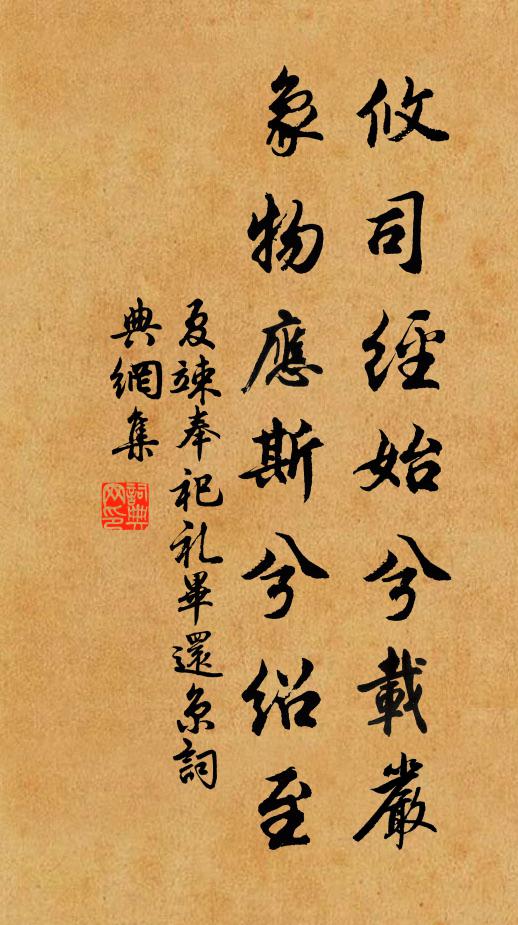 攸司經始兮載嚴
象物應斯兮紹至
夏竦奉祀礼畢還京詞
典網集
詞典網印